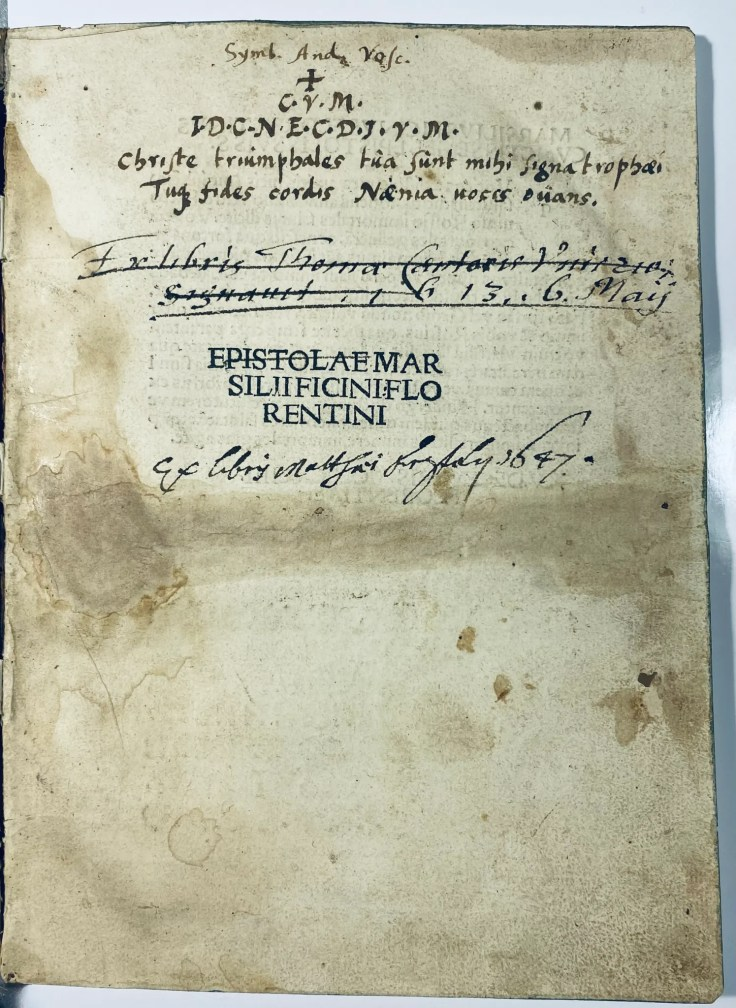 Symb. And. Vosc.
+
C. V. M.
I. D. C. N. E. C. D. I. V. M.
Christe triumphales tua sunt mihi signa trophæi
Tuq; fides cordis Nænia uocis ouans.
Ex libris Thomæ Cantoris
Signaui 1613. 6. Maij
EPISTOLAE MAR
SILII FICINI FLO
RENTINI
Ex libris Matthæi 1647.